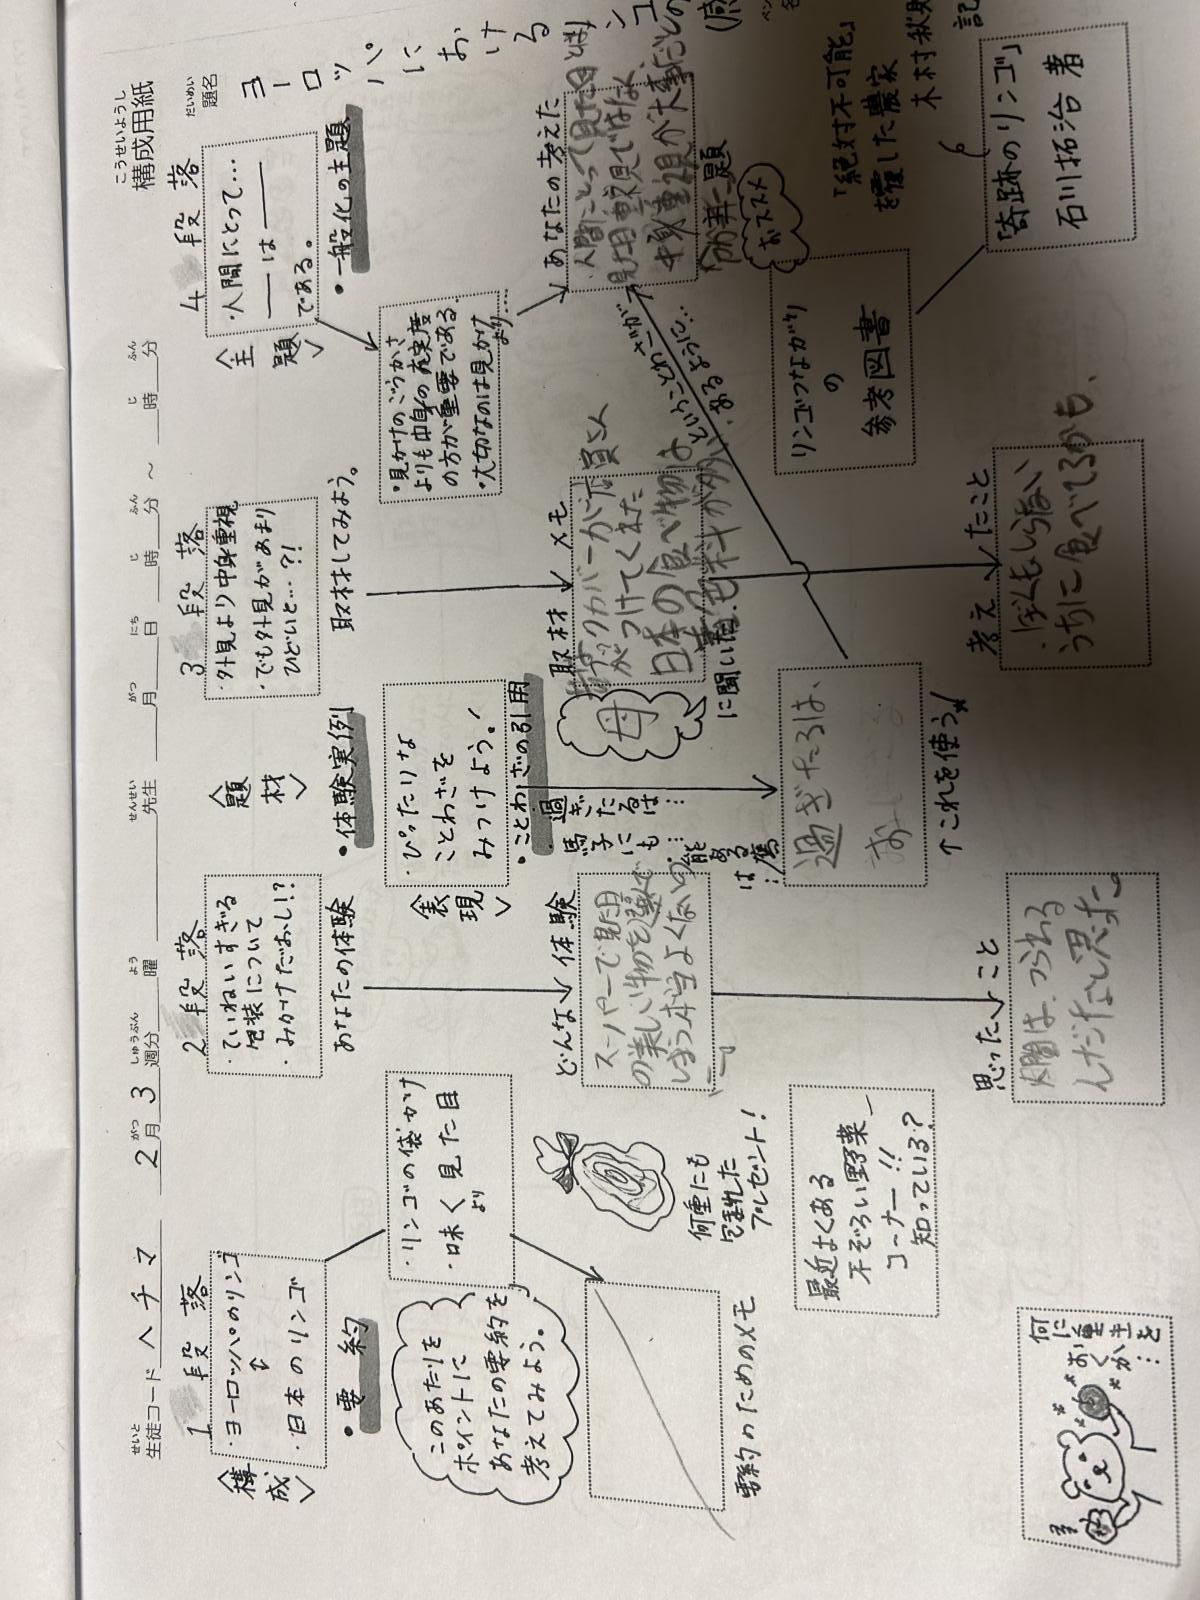 構成用紙
こうせいようし
題名
だいめい
ヨーロッパにおける
生徒コード ヘチマ 2月3週分 曜 先生 月 日 時 分 〜 時 分
せいと がつ しゅうぶん よう せんせい がつ にち じ ふん じ ふん
〈構成〉
1段落
・ヨーロッパのリンゴ
↔
・日本のリンゴ
・要約
・リンゴの袋かけ
・味<見た目
より
このあたりを
ポイントに
あなたの要約を
考えてみよう。
要約のためのメモ
2段落
・ていねいすぎる
包装について
・みかけだおし!?
あなたの体験
どんな体験
スーパーで見た目
の美しい物を選んで
しまう
思ったこと
人間は、つられる
んだなと思った。
何重にも
包まれた
プレゼント!
最近よくある
不ぞろい野菜
コーナー!!
知っている?
何に重きを
おくか…
〈題材〉
・体験実例
3段落
・外見より中身重視
・でも外見があまり
ひどいと…?!
取材してみよう。
取材メモ
母
に聞いた
がつけてくれた
日本の食べ物は
考えたこと
・ぼくもしらない
うちに食べてるかも、
〈表現〉
・ぴったりな
ことわざを
みつけよう!
・ことわざの引用
過ぎたるは…
馬子にも…
能ある鷹は…
過ぎたるは、
↑これを使う
〈主題〉
4段落
・人間にとって…
――は――
である。
・一般化の主題
・見かけのごうかさ
よりも中身の充実度
の方が重要である。
・大切なのは見かけ
より…
あなたの考えた
・人間にとって見た目とは
中身重視が大事だとの
ということわざが
あるように…
おススメ
リンゴつながり
の
参考図書
「奇跡のリンゴ」
石川拓治 著
「絶対不可能」
を覆した農家
木村秋則
記